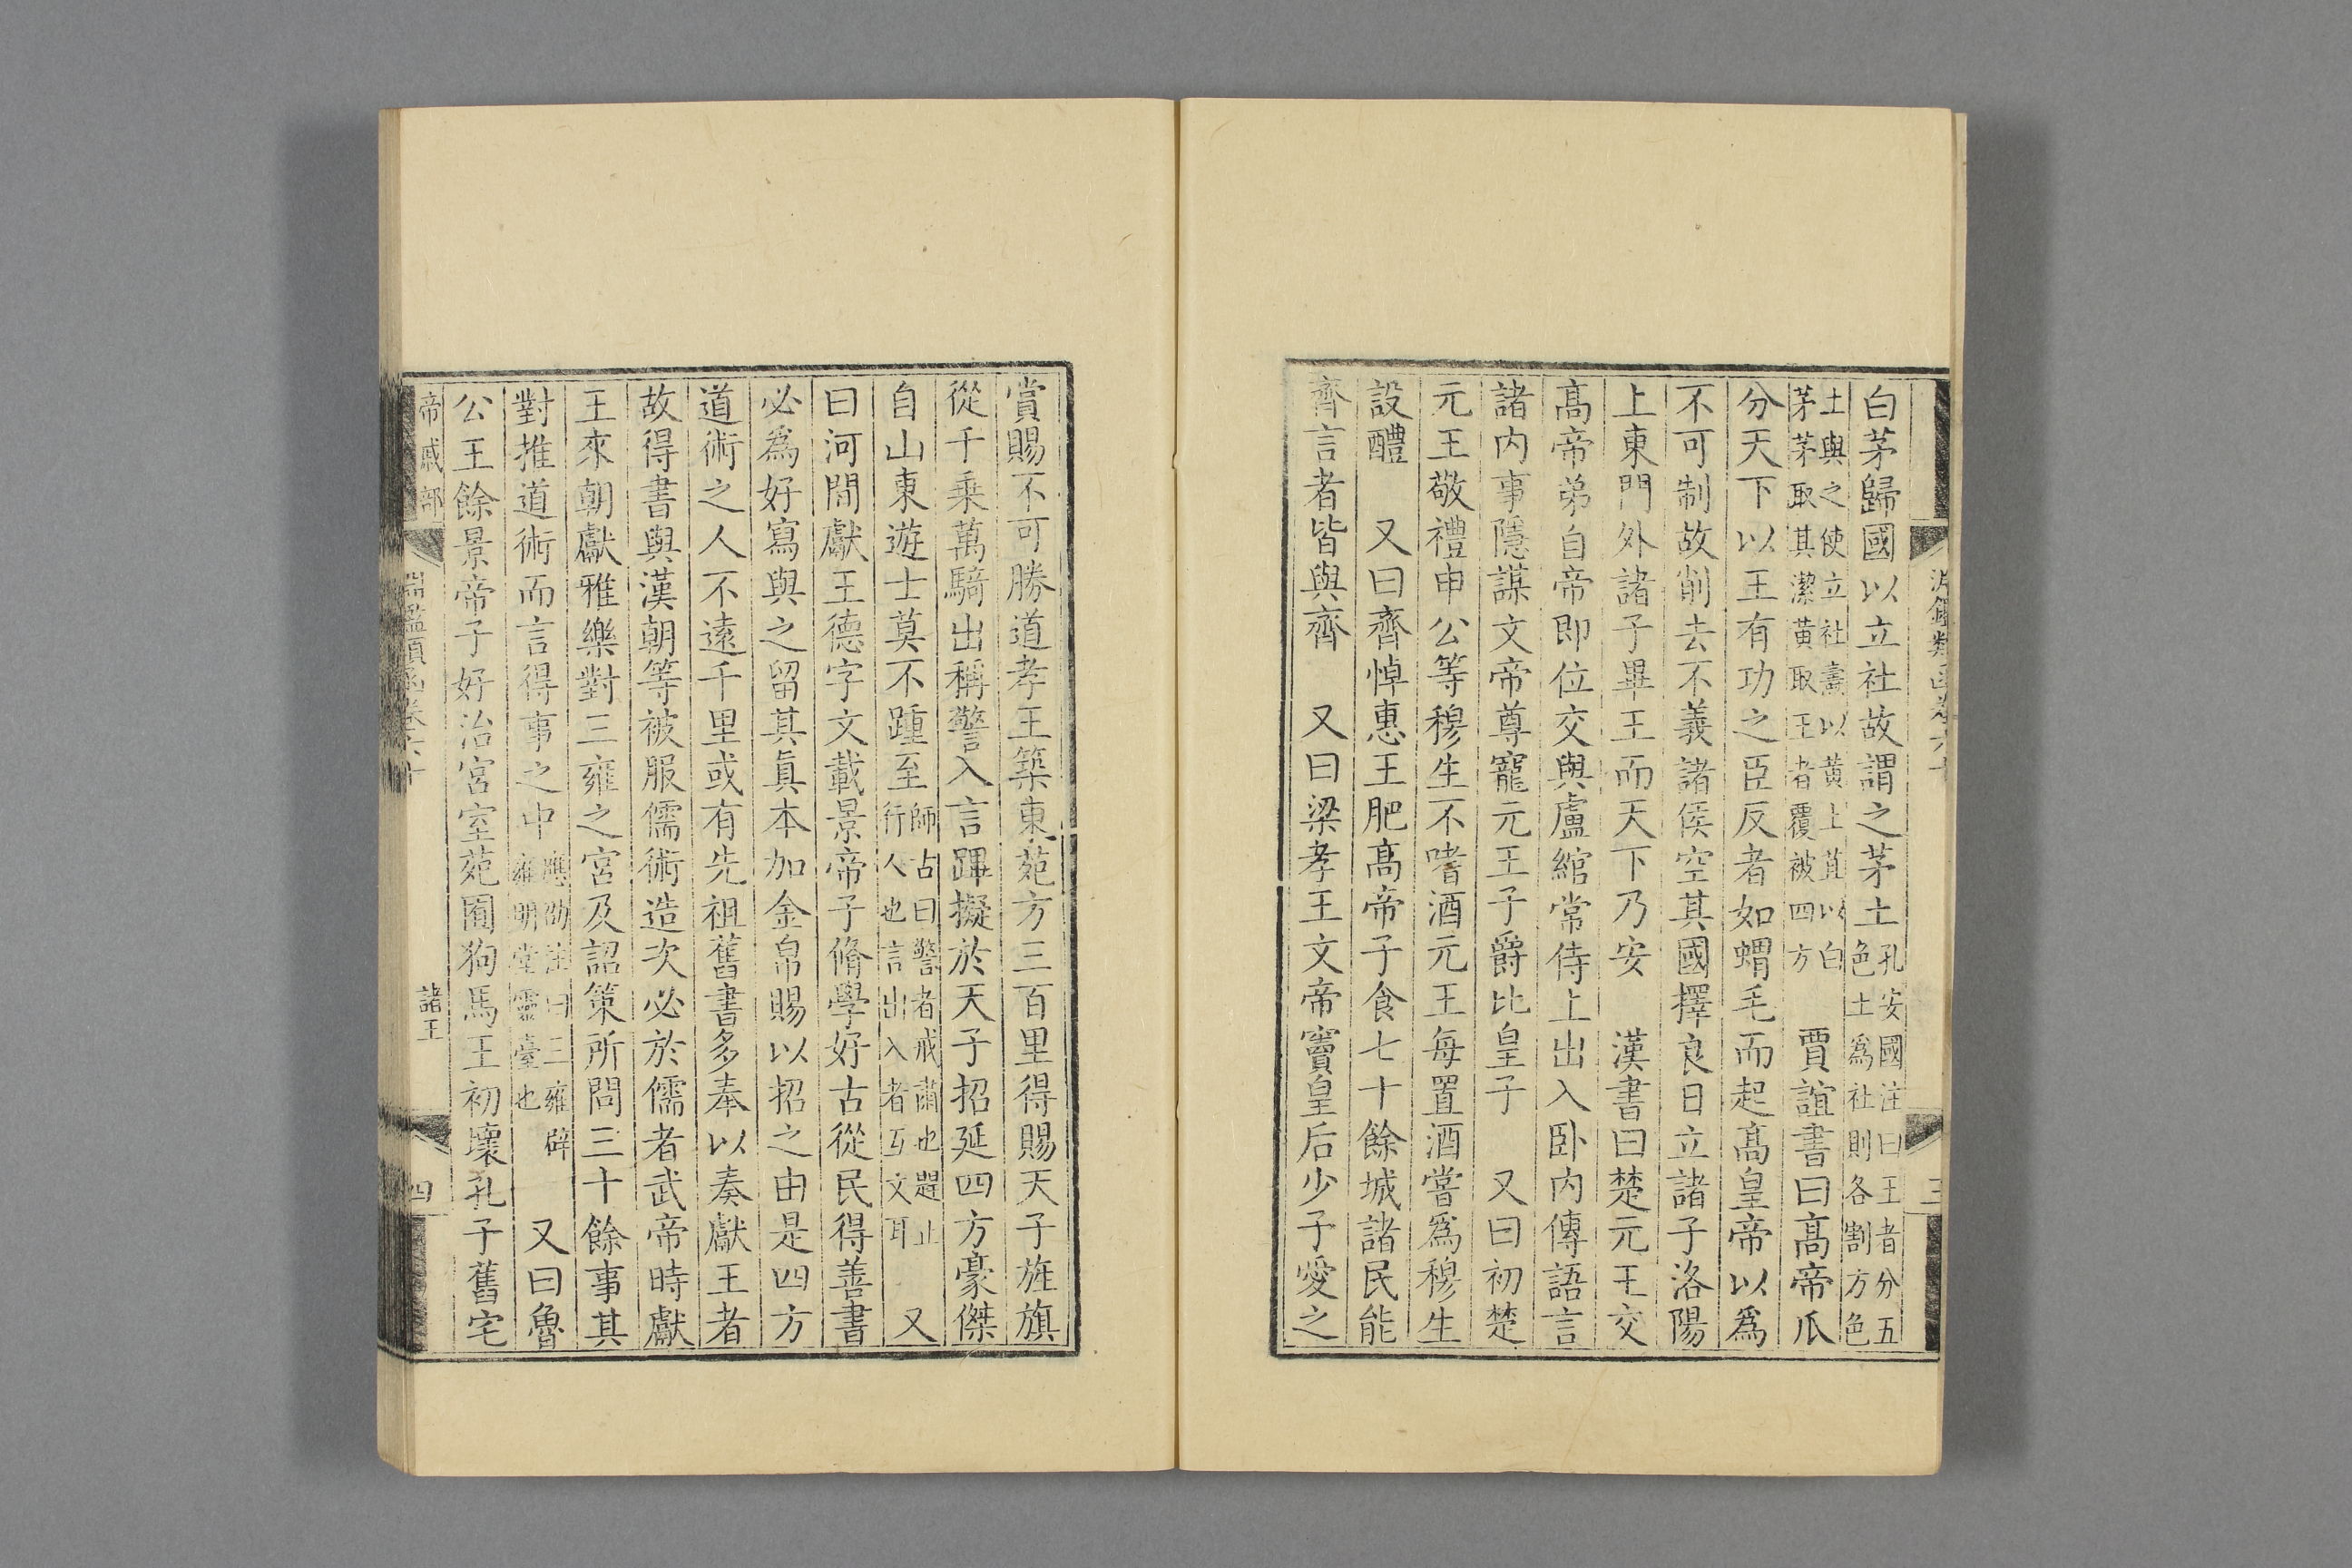 白茅歸國以立社故謂之茅土孔安國注曰王者分五色土爲社則各割方色
土與之使立社燾以黃土苴以白茅茅取其潔黃取王者覆被四方　賈誼書曰高帝瓜
分天下以王有功之臣反者如蝟毛而起高皇帝以爲
不可制故削去不義諸侯空其國擇良日立諸子洛陽
上東門外諸子畢王而天下乃安　漢書曰楚元王交
高帝弟自帝即位交與盧綰常侍上出入卧内傳語言
諸内事隱謀文帝尊寵元王子爵比皇子　又曰初楚
元王敬禮申公等穆生不嗜酒元王每置酒嘗爲穆生
設醴　又曰齊悼惠王肥高帝子食七十餘城諸民能
齊言者皆與齊　又曰梁孝王文帝竇皇后少子愛之
賞賜不可勝道孝王築東苑方三百里得賜天子旌旗
從千乘萬騎出稱警入言蹕擬於天子招延四方豪傑
自山東遊士莫不踵至師古曰警者戒肅也趩止行人也言出入者互文耳　又
曰河間獻王德字文載景帝子脩學好古從民得善書
必爲好寫與之留其眞本加金帛賜以招之由是四方
道術之人不遠千里或有先祖舊書多奉以奏獻王者
故得書與漢朝等被服儒術造次必於儒者武帝時獻
王來朝獻雅樂對三雍之宮及詔策所問三十餘事其
對推道術而言得事之中應劭注曰三雍辟雍明堂靈臺也　又曰魯
公王餘景帝子好治宮室苑囿狗馬王初壞孔子舊宅
帝戚部
諸王
四